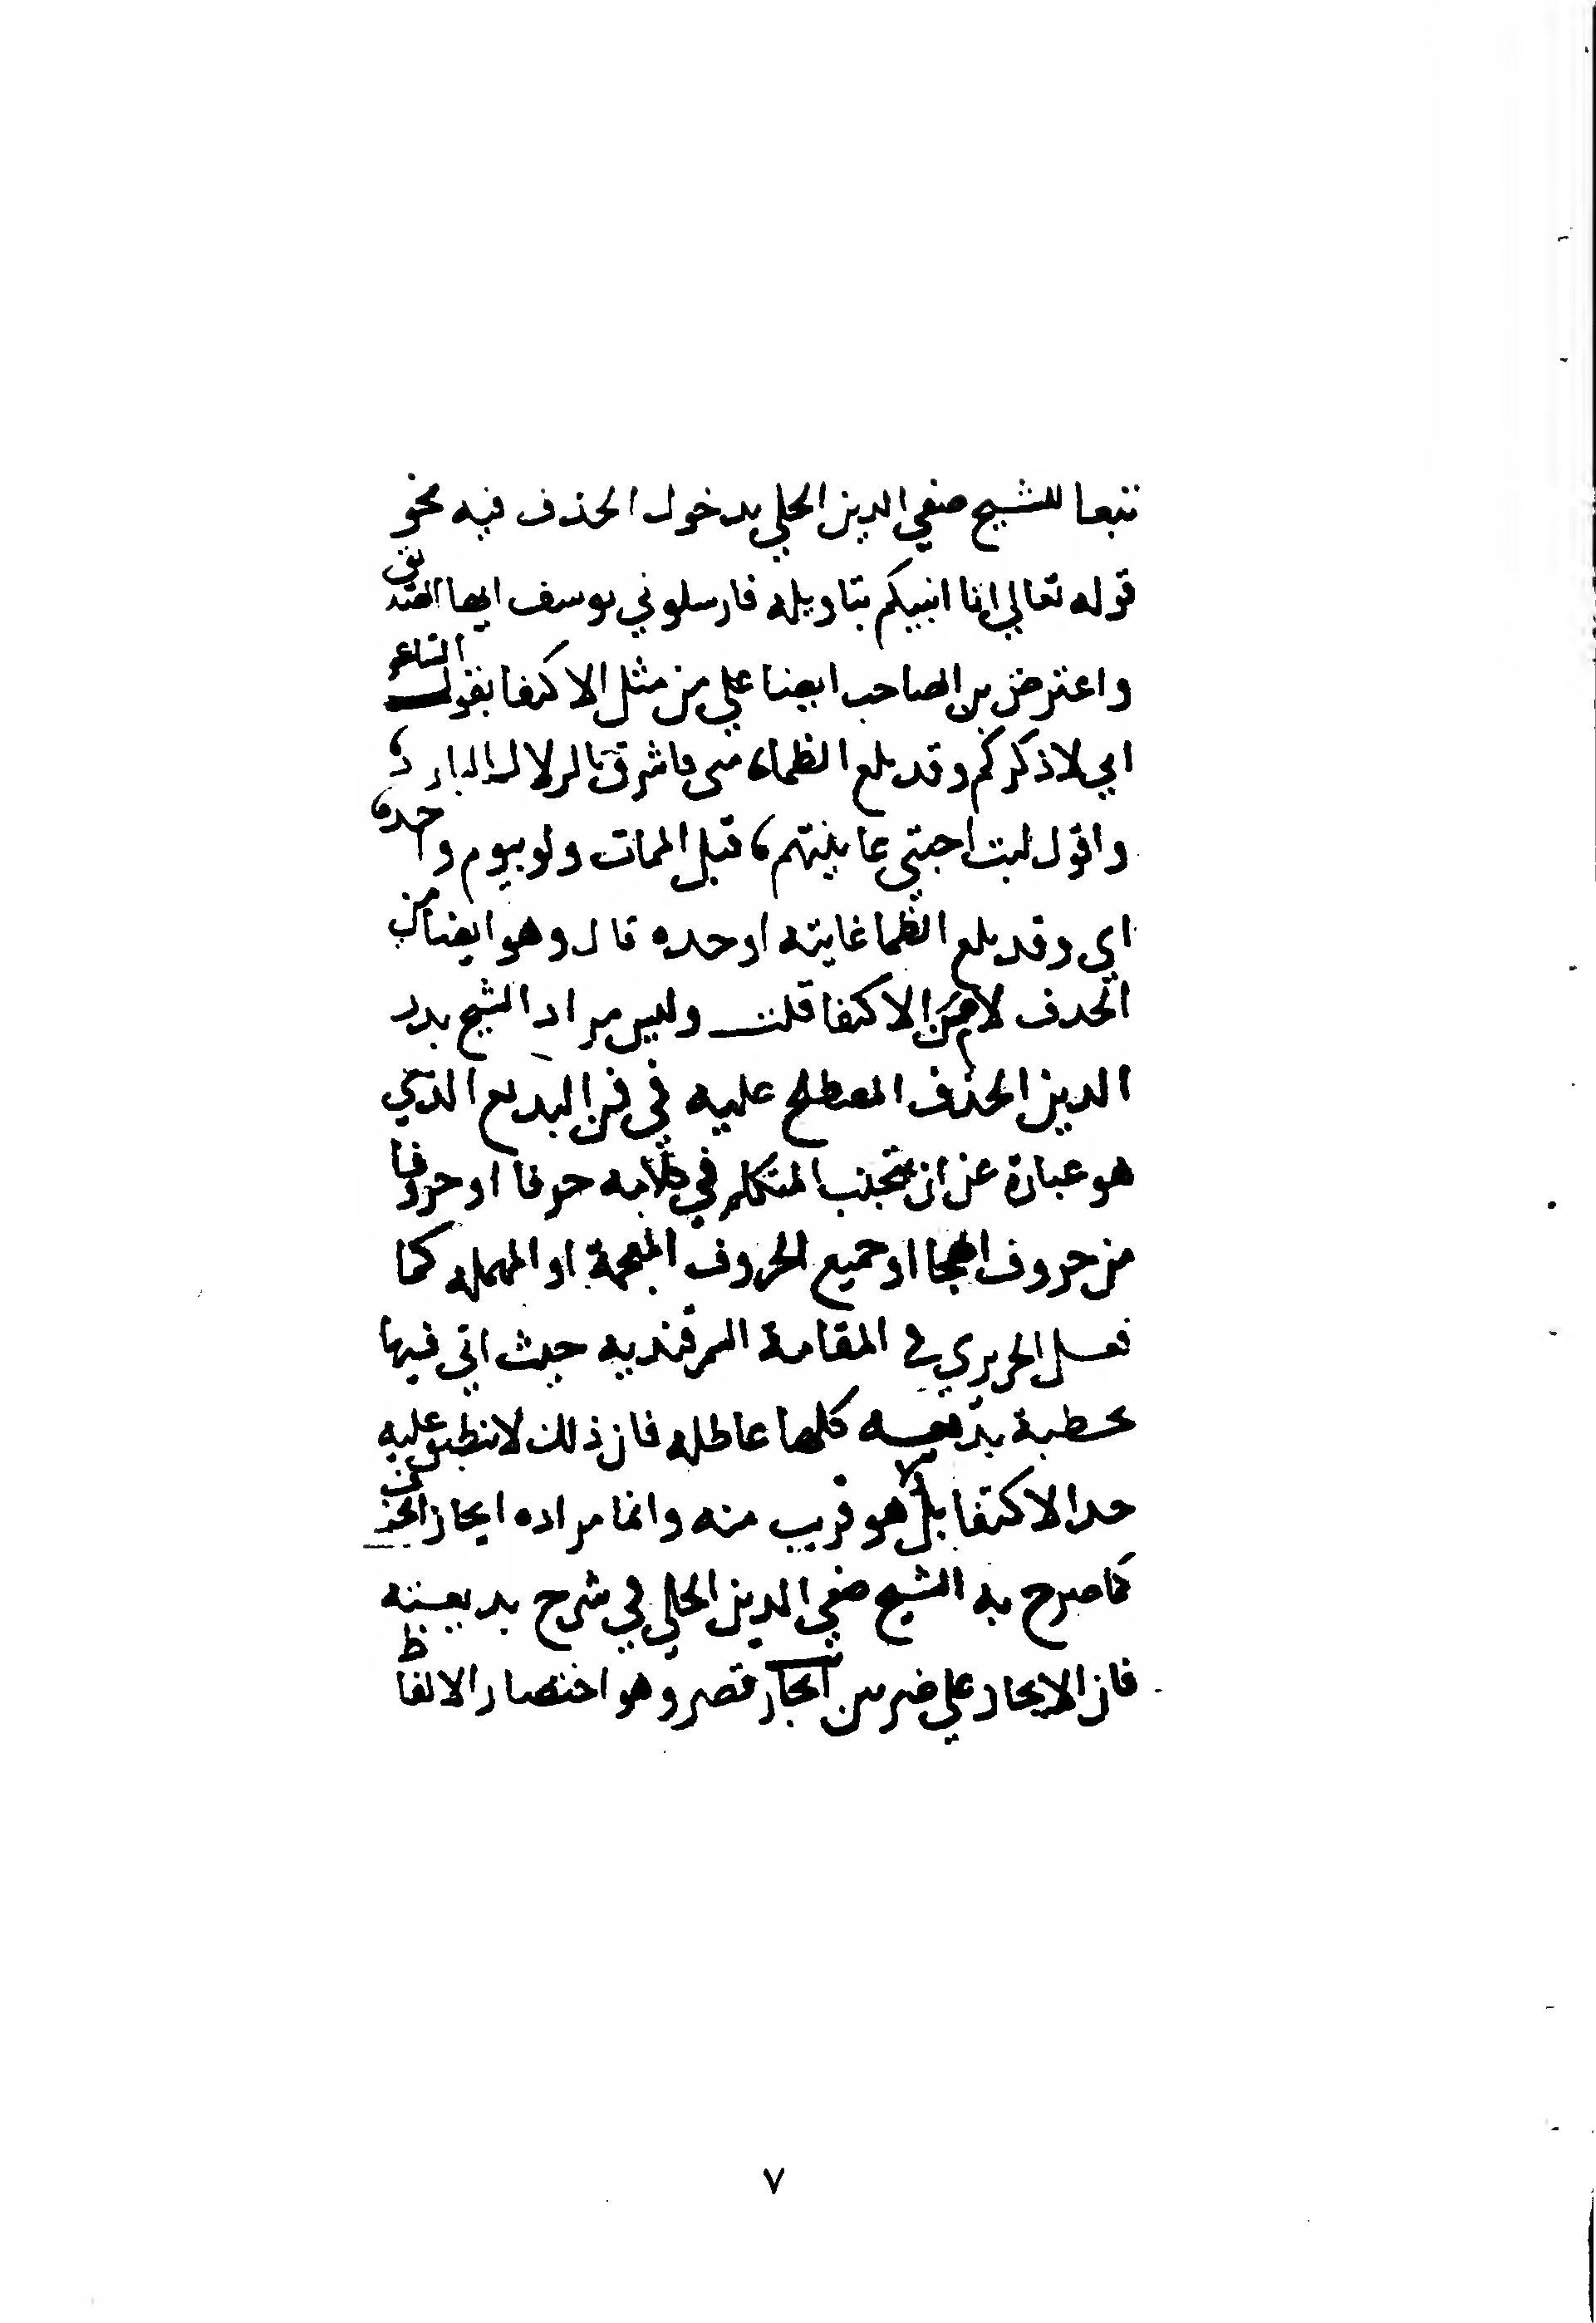 تبعا للشيخ صفي الدين الحلي بدخول الحذف فيه نحو
قوله تعالي انا انبيكم بتاويله فارسلوني يوسف ايها الصديق
واعترض بن الصاحب ايضا علي من مثل الاكتفا بقول الشاعر
اني لاذكركم وقد بلغ الظما مني فاشرق بالزلال البارد
واقول ليت احبتي عاينتهم قبل الممات ولو بيوم واحد
اي وقد بلغ الظما غايته او حده قال وهو ايضا من
الحذف لا من الاكتفا قلت وليس مراد الشيخ بدر
الدين الحذف المصطلح عليه في فن البديع الذي
هو عبارة عن ان يتجنب المتكلم في كلامه حرفا او حروفا
من حروف الهجا او جميع الحروف المعجمة او المهمله كما
فعل الحريري في المقامة السمرقنديه حيث اتي فيها
بخطبة بديعه كلها عاطله فان ذلك لا ينطبق عليه
حد الاكتفا بل ولا هو قريب منه وانما مراده ايجاز الحذف
كما صرح به الشيخ صفي الدين الحلي في شرح بديعيته
فان الايجاز علي ضربين ايجاز قصر وهو اختصار الالفاظ
٧